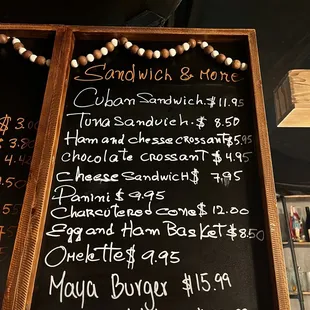 Sandwich & More
Cuban Sandwich. $11.95
Tuna Sandwich. $ 8.50
Ham and chesse crossant $5.95
chocolate crossant $ 4.95
cheese Sandwich $ 7.95
Panini $ 9.95
Charcutered cone $ 12.00
Egg and Ham Basket $8.50
Omelette $ 9.95
Maya Burger $15.99